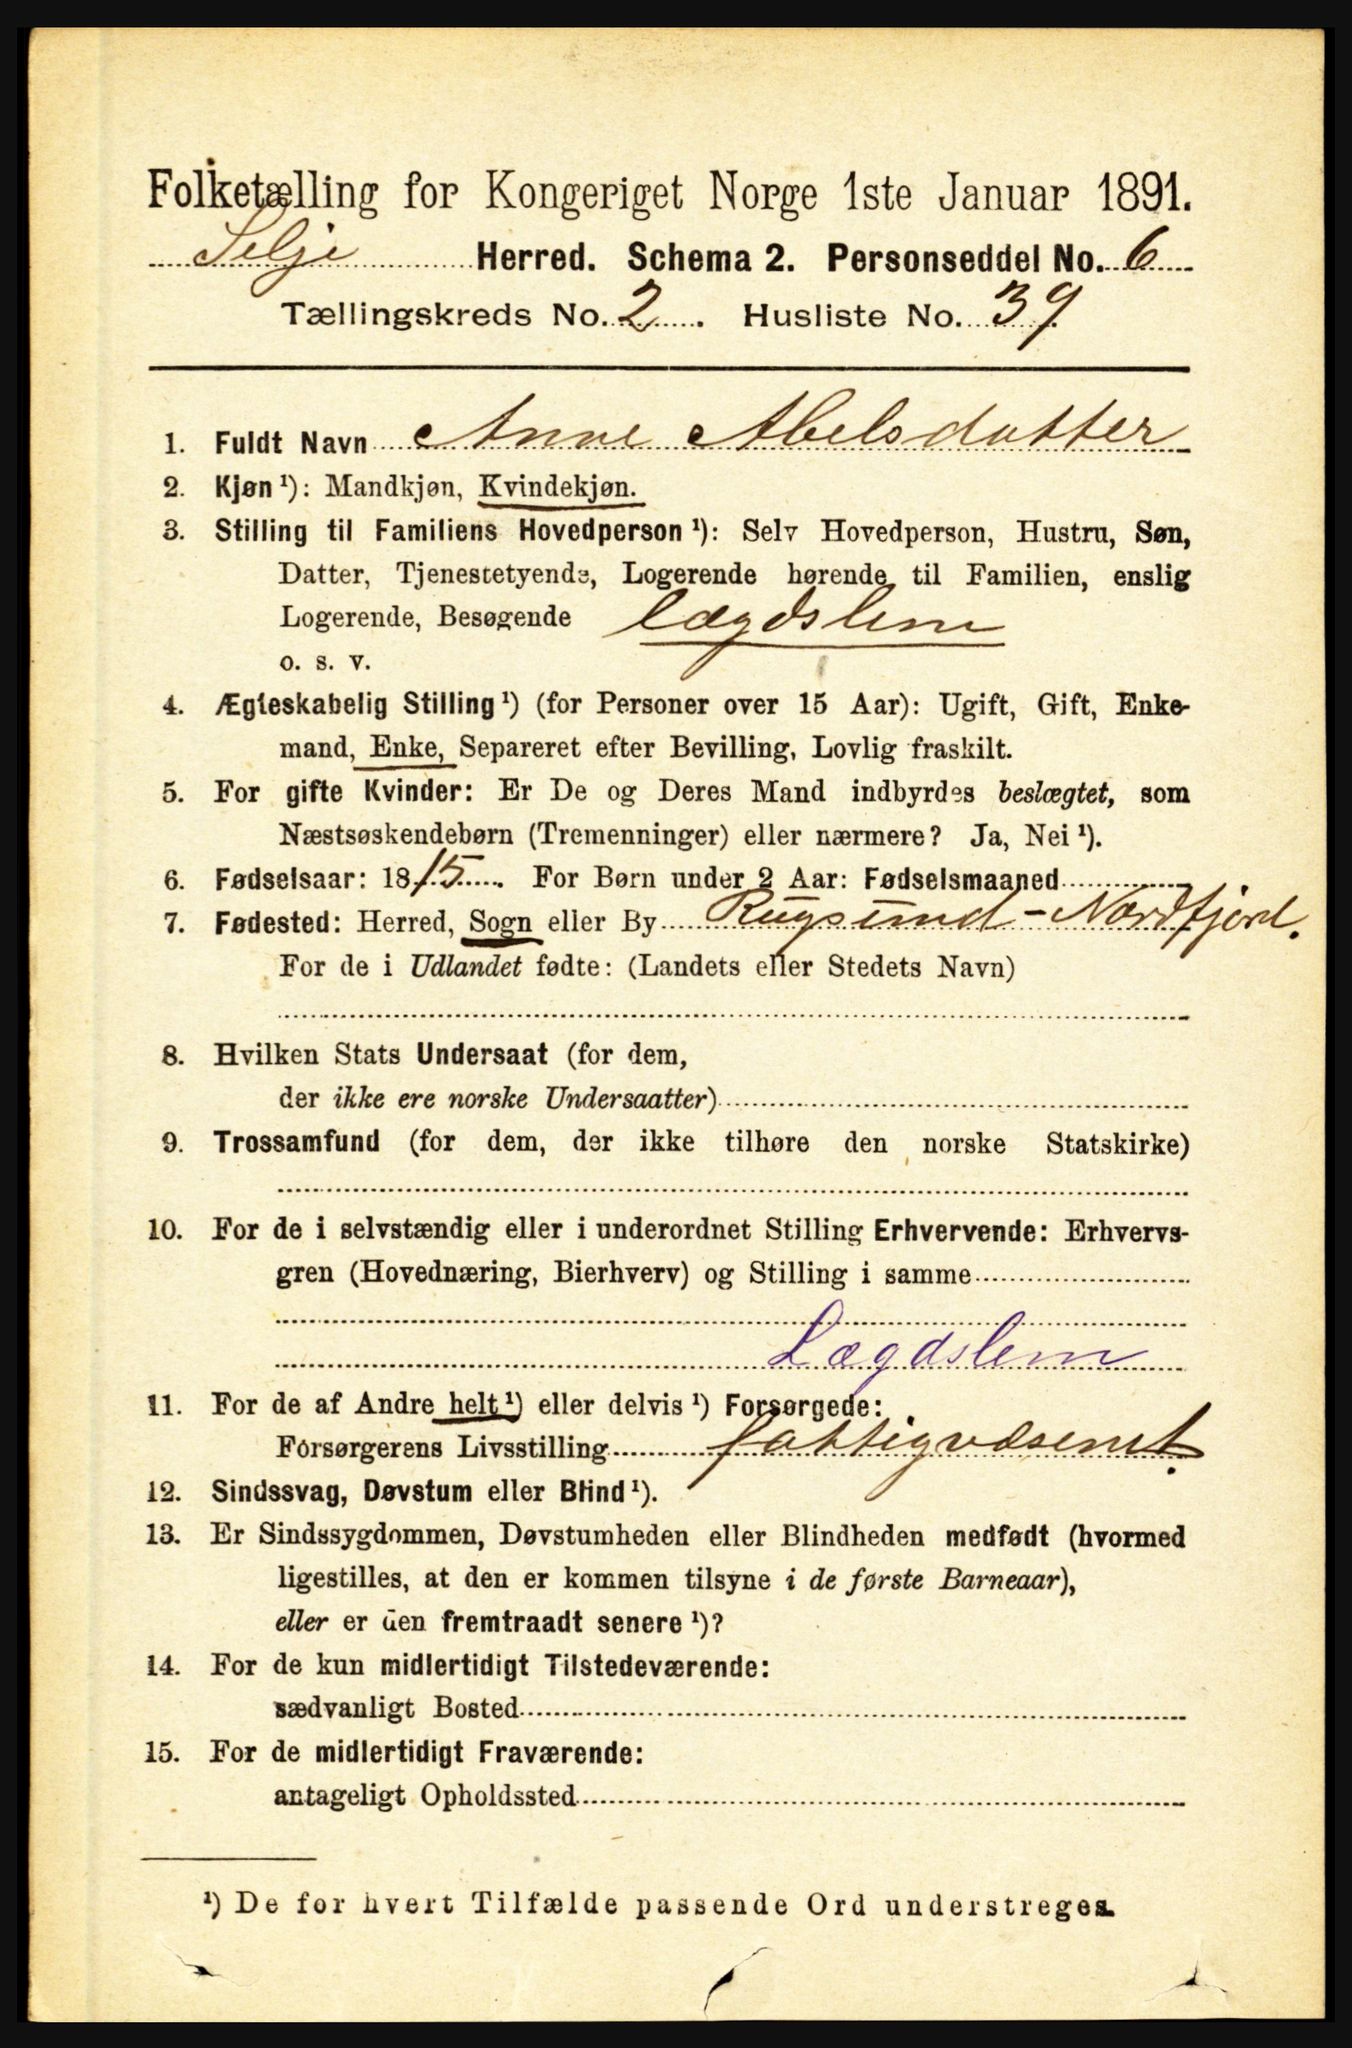 Folketælling for Kongeriget Norge 1ste Januar 1891.
Selje Herred. Schema 2. Personseddel No. 6
Tællingskreds No. 2. Husliste No. 39
1. Fuldt Navn Anne Abelsdatter
2. Kjøn ¹): Mandkjøn, Kvindekjøn.
3. Stilling til Familiens Hovedperson ¹): Selv Hovedperson, Hustru, Søn,
Datter, Tjenestetyende, Logerende hørende til Familien, enslig
Logerende, Besøgende lægdslem
o. s. v.
4. Ægteskabelig Stilling ¹) (for Personer over 15 Aar): Ugift, Gift, Enke-
mand, Enke, Separeret efter Bevilling, Lovlig fraskilt.
5. For gifte Kvinder: Er De og Deres Mand indbyrdes beslægtet, som
Næstsøskendebørn (Tremenninger) eller nærmere? Ja, Nei ¹).
6. Fødselsaar: 1815. For Børn under 2 Aar: Fødselsmaaned
7. Fødested: Herred, Sogn eller By Rugsund - Nordfjord.
For de i Udlandet fødte: (Landets eller Stedets Navn)
8. Hvilken Stats Undersaat (for dem,
der ikke ere norske Undersaatter)
9. Trossamfund (for dem, der ikke tilhøre den norske Statskirke)
10. For de i selvstændig eller i underordnet Stilling Erhvervende: Erhvervs-
gren (Hovednæring, Bierhverv) og Stilling i samme
Lægdslem
11. For de af Andre helt ¹) eller delvis ¹) Forsørgede:
Forsørgerens Livsstilling fattigvæsenet.
12. Sindssvag, Døvstum eller Blind ¹).
13. Er Sindssygdommen, Døvstumheden eller Blindheden medfødt (hvormed
ligestilles, at den er kommen tilsyne i de første Barneaar),
eller er den fremtraadt senere ¹)?
14. For de kun midlertidigt Tilstedeværende:
sædvanligt Bosted
15. For de midlertidigt Fraværende:
antageligt Opholdssted
¹) De for hvert Tilfælde passende Ord understreges.